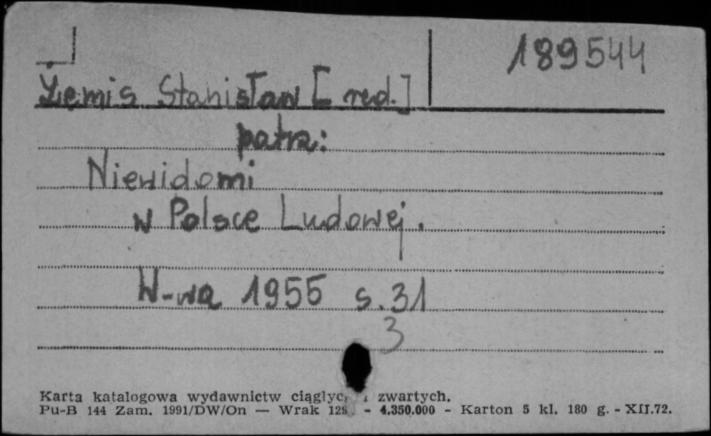 189544
Żemis Stanisław [red.]
patrz:
Niewidomi
w Polsce Ludowej.
W-wa 1955 s. 31
3
Karta katalogowa wydawnictw zwartych.
Pu-B 144 Zam. 1991/DW/On — Wrak - 4.350.000 - Karton 5 kl. 180 g. - XII.72.